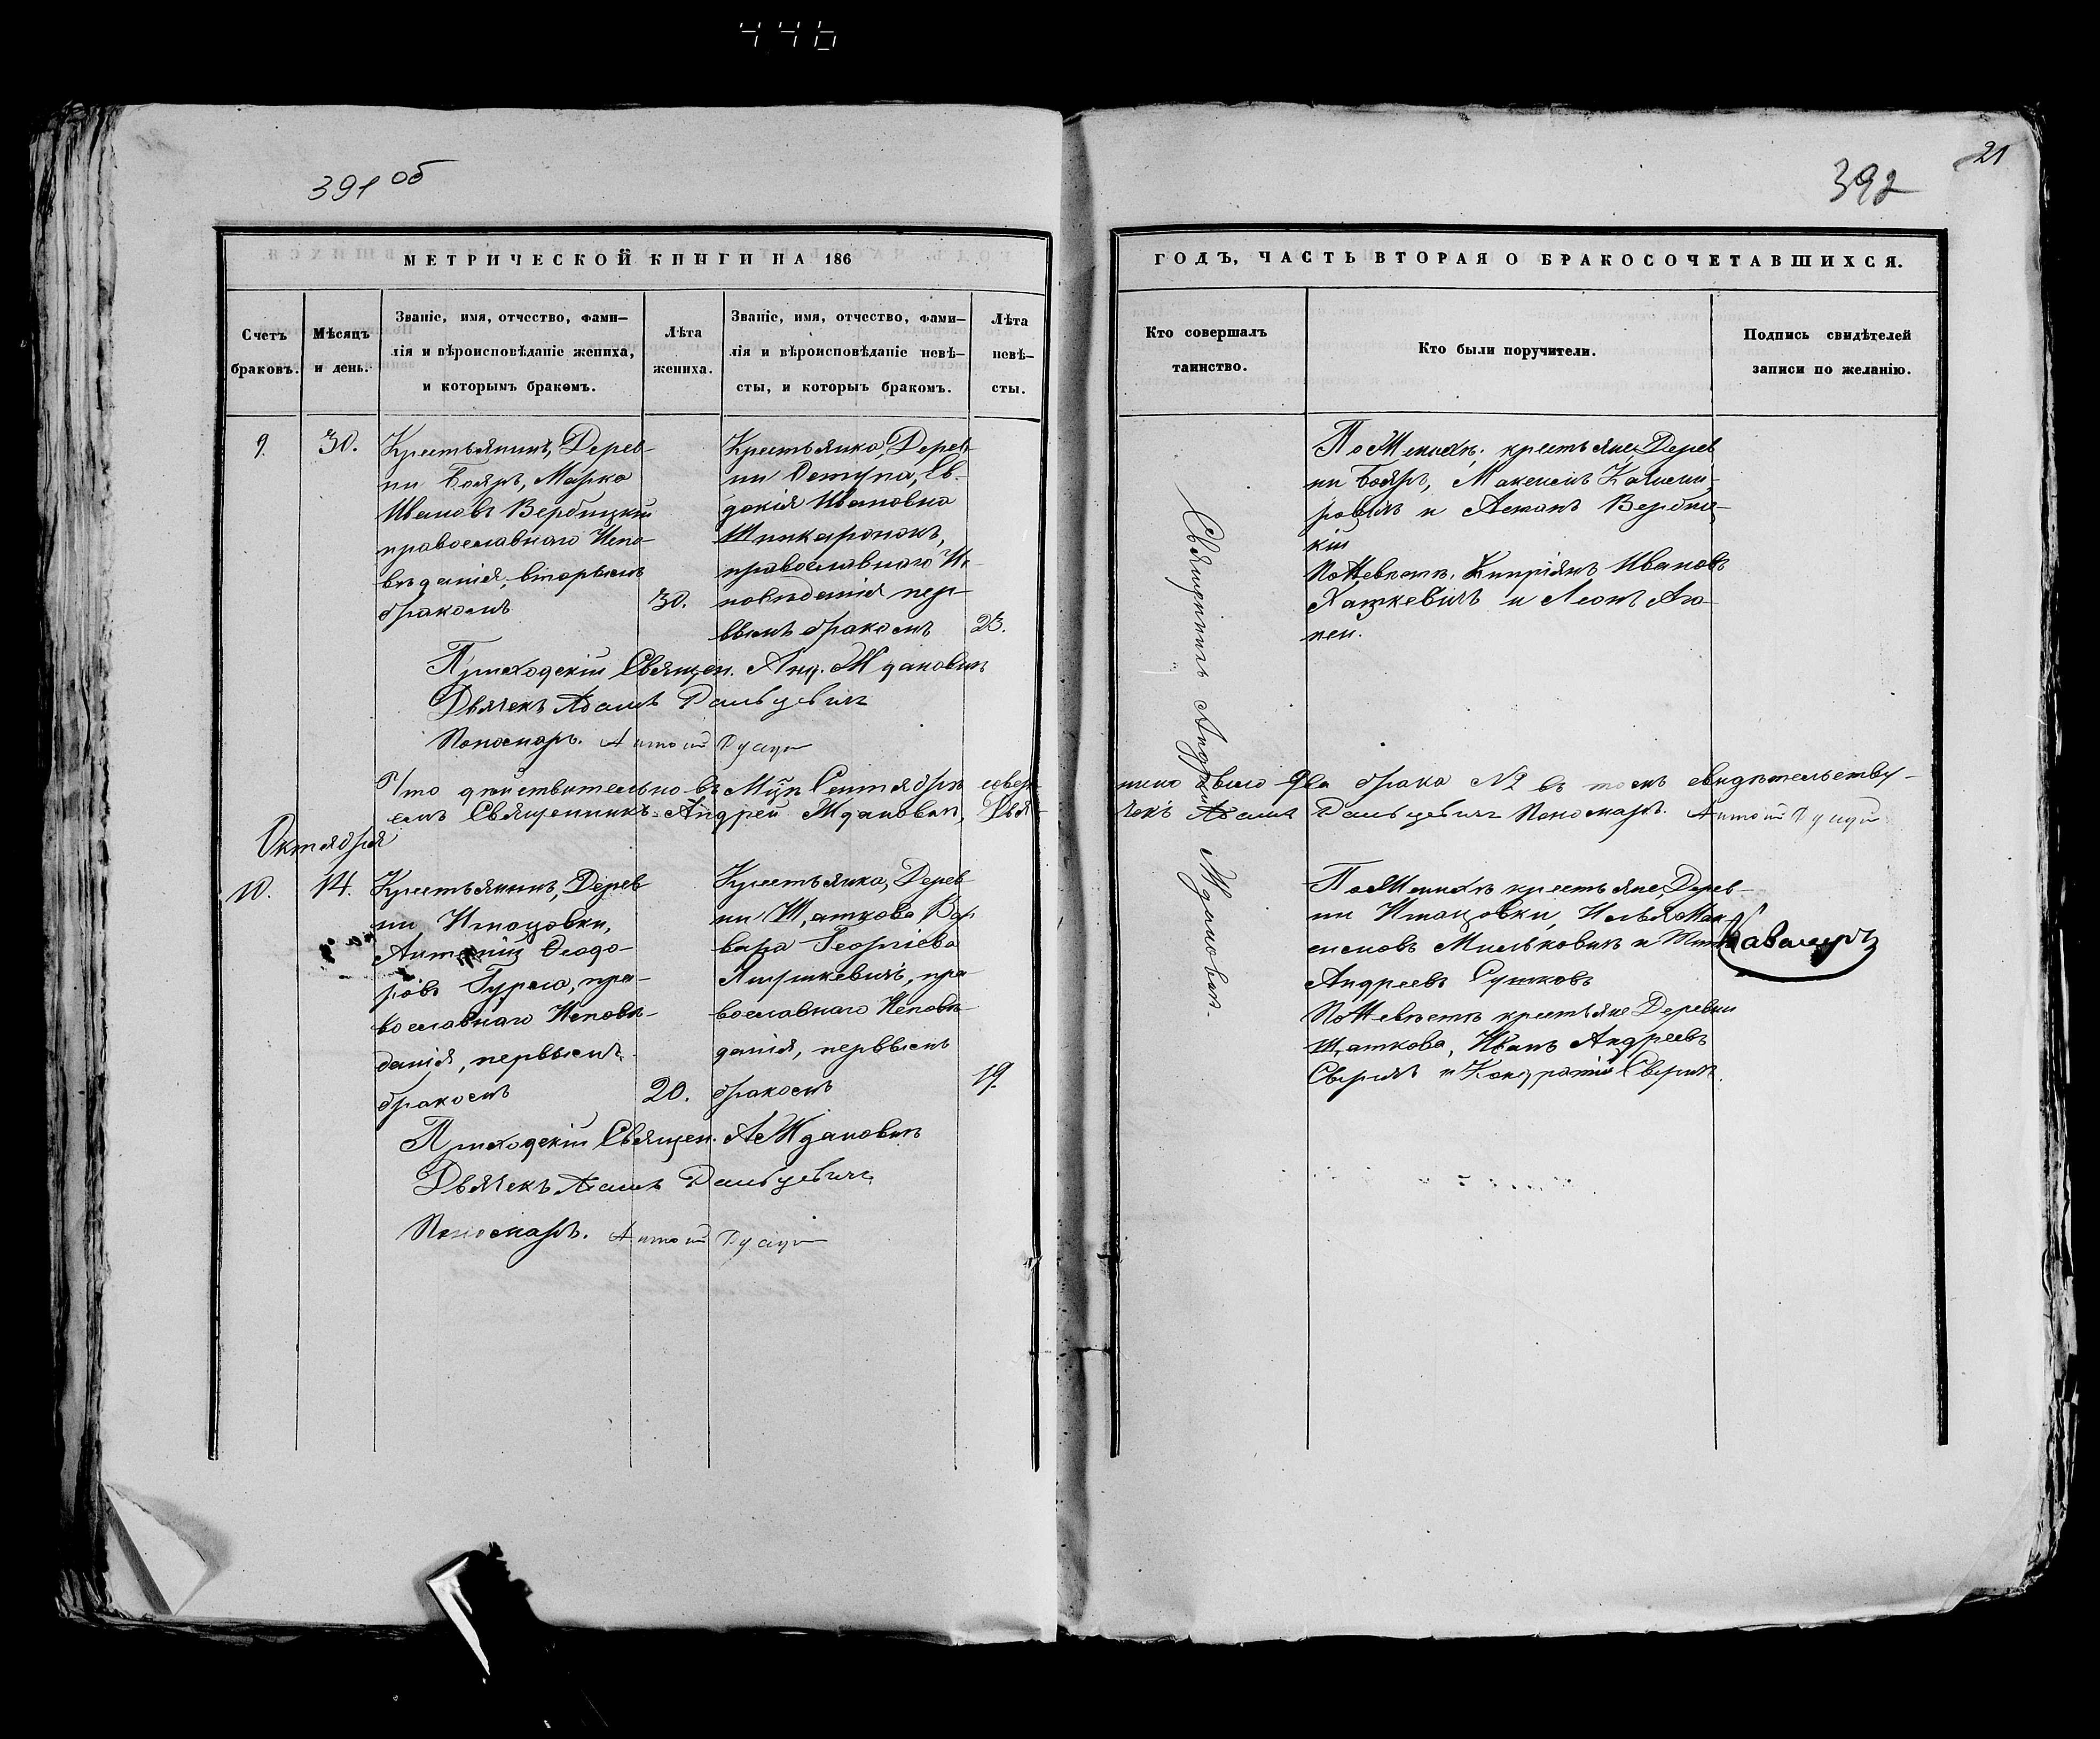 446
391 об
МЕТРИЧЕСКОЙ КНИГИ НА 186
Счетъ
браковъ.
Мѣсяцъ
и день.
Званіе, имя, отчество, фами-
лія и вѣроисповѣданіе жениха,
и которымъ бракомъ.
Лѣта
жениха.
Званіе, имя, отчество, фами-
лія и вѣроисповѣданіе невѣ-
сты, и которыъ бракомъ.
Лѣта
невѣ-
сты.
9.
30.
Крестьянинъ, Дерев-
ни Бояръ, Марко
Ивановъ Вербицкій
православнаго Испо-
вѣданія, вторымъ
бракомъ
30.
Крестьянка, Дерев-
ни Оступа, Ев-
докія Иванова
православнаго Ис-
повѣданія пер-
вымъ бракомъ
23.
Приходскій Священ. Анд. Ждановичъ
Дьячекъ Адамъ
Пономарь. Антоній
Что дѣйствительно въ Мцѣ Сентябрѣ совер-
емъ Священникъ Андрей Ждановичъ, Дья-
Октября
10.
14.
Крестьянинъ, Дерев
ни
Антоній Ѳеодо-
ровъ пра-
вославнаго Исповѣ-
данія, первымъ
бракомъ
20.
Крестьянка, Дерев
ни Шаткова Вар
вара Георгіева
пра
вославнаго Исповѣ-
данія, первымъ
бракомъ
19.
Приходскій Священ. А Ждановичъ
Дьячекъ Адамъ
Пономарь. Антоній
21
392
ГОДЪ, ЧАСТЬ ВТОРАЯ О БРАКОСОЧЕТАВШИХСЯ.
Кто совершалъ
таинство.
Кто были поручители.
Подпись свидѣтелей
записи по желанію.
Священникъ Андрей Ждановичъ.
По Женихѣ: крестьяне, Дерев
ни Бояръ, Максимъ
и Вербиц-
кій
По Невѣстѣ: Кипріянъ Ивановъ
Хацкевичъ и Леонъ
шено было два брака №2 въ томъ свидѣтельству-
чекъ Адамъ Пономарь. Антоній
По Женихѣ крестьяне, Дерев-
ни Илья Мак-
симовъ Милько­вичъ и
Андреевъ Сушковъ
По Невѣстѣ крестьяне Деревни
Шаткова, Иванъ Андреевъ
Свиридъ и Кондратій Свиридъ.